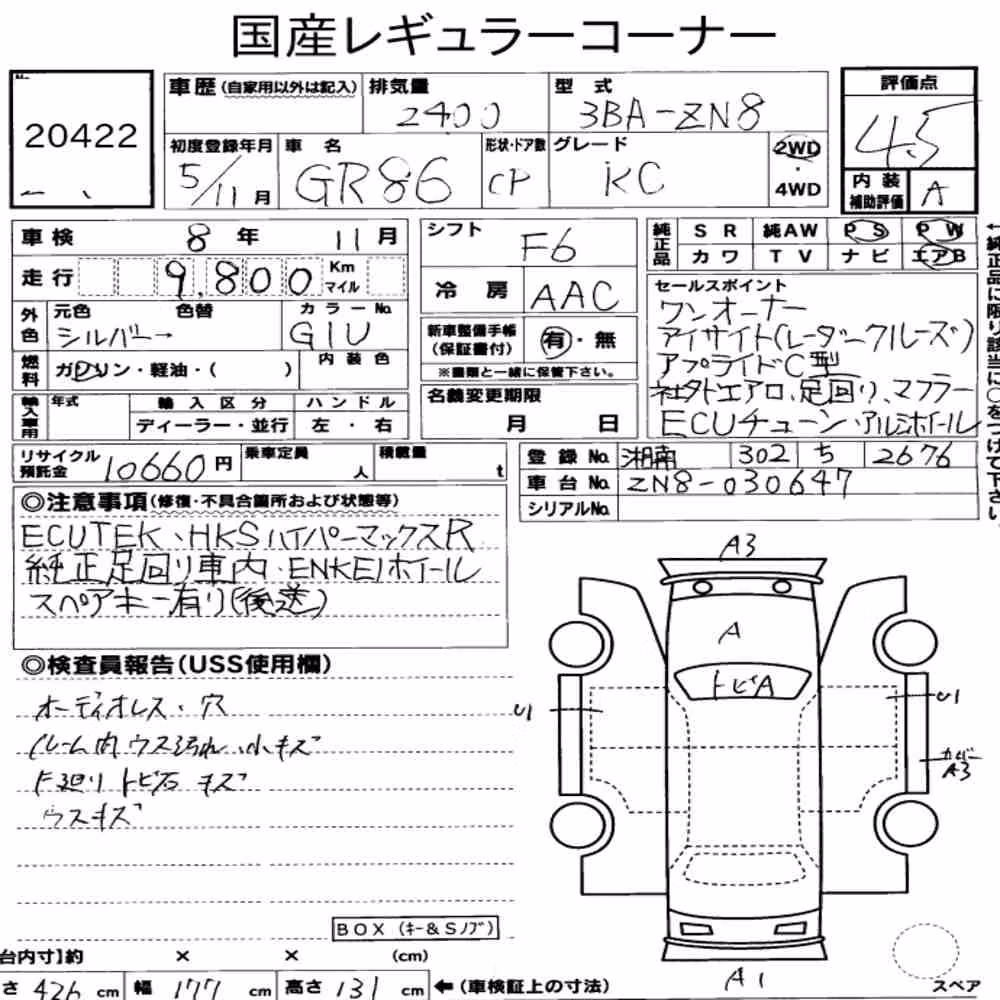 国産レギュラーコーナー
20422
車歴(自家用以外は記入) 排気量 2400 型式 3BA-ZN8
評価点 4.5
初度登録年月 5/11月 車名 GR86 形状・ドア数 CP グレード RC 2WD・4WD
内装補助評価 A
車検 8年 11月
走行 9,800 Km マイル
外色 元色 シルバー→ 色替 カラーNo. G1U
燃料 ガソリン・軽油・( ) 内装色
輸入車用 年式 輸入区分 ディーラー・並行 ハンドル 左・右
シフト F6
冷房 AAC
新車整備手帳(保証書付) 有・無
※書類と一緒に保管下さい。
名義変更期限 月 日
純正品 SR 純AW PS PW
カワ TV ナビ エアB
セールスポイント
ワンオーナー
アイサイト(レーダークルーズ)
アプライドC型
社外エアロ、足回り、マフラー
ECUチューン・アルミホイール
←純正品に限り該当に○をつけて下さい
リサイクル預託金 10660円 乗車定員 人 積載量 t
登録No. 湘南 302 ち 2676
車台No. ZN8-030647
シリアルNo.
◎注意事項(修復・不具合箇所および状態等)
ECUTEK、HKSハイパーマックスR
純正足回り車内・ENKEIホイール
スペアキー有り(後送)
◎検査員報告(USS使用欄)
オーディオレス・穴
ルーム内ウス汚れ、小キズ
F廻りトビ石キズ
ウスキズ
A3
A
トビA
U1
U1
カバーA3
A1
BOX (キー&Sノブ)
台内寸】約 × × (cm)
さ 426 cm 幅 177 cm 高さ 131 cm ←(車検証上の寸法)
スペア